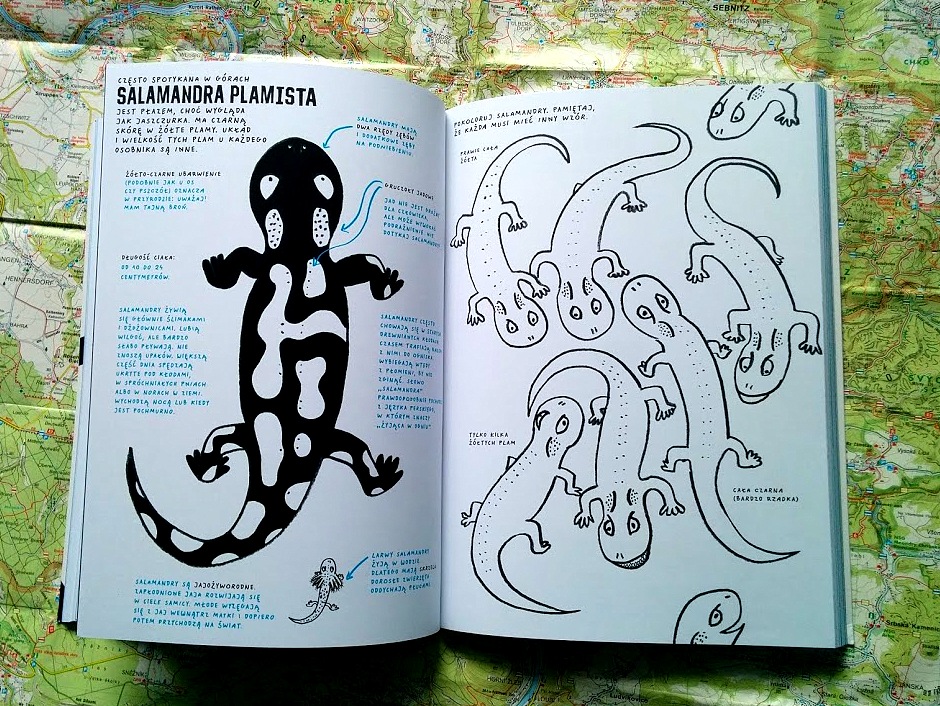 CZĘSTO SPOTYKANA W GÓRACH
SALAMANDRA PLAMISTA
JEST PŁAZEM, CHOĆ WYGLĄDA
JAK JASZCZURKA. MA CZARNĄ
SKÓRĘ W ŻÓŁTE PLAMY. UKŁAD
I WIELKOŚĆ TYCH PLAM U KAŻDEGO
OSOBNIKA SĄ INNE.
SALAMANDRY MAJĄ
DWA RZĘDY ZĘBÓW
I DODATKOWE ZĘBY
NA PODNIEBIENIU.
ŻÓŁTO-CZARNE UBARWIENIE
(PODOBNIE JAK U OS
CZY PSZCZÓŁ) OZNACZA
W PRZYRODZIE: UWAŻAJ!
MAM TAJNĄ BROŃ.
GRUCZOŁY JADOWE
JAD NIE JEST GROŹNY
DLA CZŁOWIEKA,
ALE MOŻE WYWOŁAĆ
PODRAŻNIENIE. NIE
DOTYKAJ SALAMANDRY
DŁUGOŚĆ CIAŁA:
OD 10 DO 24
CENTYMETRÓW.
SALAMANDRY ŻYWIĄ
SIĘ GŁÓWNIE ŚLIMAKAMI
I DŻDŻOWNICAMI. LUBIĄ
WILGOĆ, ALE BARDZO
SŁABO PŁYWAJĄ. NIE
ZNOSZĄ UPAŁÓW. WIĘKSZĄ
CZĘŚĆ DNIA SPĘDZAJĄ
UKRYTE POD KŁODAMI,
W SPRÓCHNIAŁYCH PNIACH
ALBO W NORACH W ZIEMI.
WYCHODZĄ NOCĄ LUB KIEDY
JEST POCHMURNO.
SALAMANDRY CZĘSTO
CHOWAJĄ SIĘ W STARYCH
DREWNIANYCH KŁODACH.
CZASEM TRAFIAJĄ RAZEM
Z NIMI DO OGNISKA.
WYBIEGAJĄ WTEDY
Z PŁOMIENI, BY NIE
ZGINĄĆ. SŁOWO
„SALAMANDRA”
PRAWDOPODOBNIE POCHODZI
Z JĘZYKA PERSKIEGO,
W KTÓRYM ZNACZY
„ŻYJĄCA W OGNIU”
SALAMANDRY SĄ JAJOŻYWORODNE.
ZAPŁODNIONE JAJA ROZWIJAJĄ SIĘ
W CIELE SAMICY. MŁODE WYLĘGAJĄ
SIĘ Z JAJ WEWNĄTRZ MATKI I DOPIERO
POTEM PRZYCHODZĄ NA ŚWIAT.
LARWY SALAMANDRY
ŻYJĄ W WODZIE,
DLATEGO MAJĄ SKRZELA.
DOROSŁE ZWIERZĘTA
ODDYCHAJĄ PŁUCAMI.
POKOLORUJ SALAMANDRY. PAMIĘTAJ,
ŻE KAŻDA MUSI MIEĆ INNY WZÓR.
PRAWIE CAŁA
ŻÓŁTA
TYLKO KILKA
ŻÓŁTYCH PLAM
CAŁA CZARNA
(BARDZO RZADKA)
SEBNITZ
HENNERSDORF